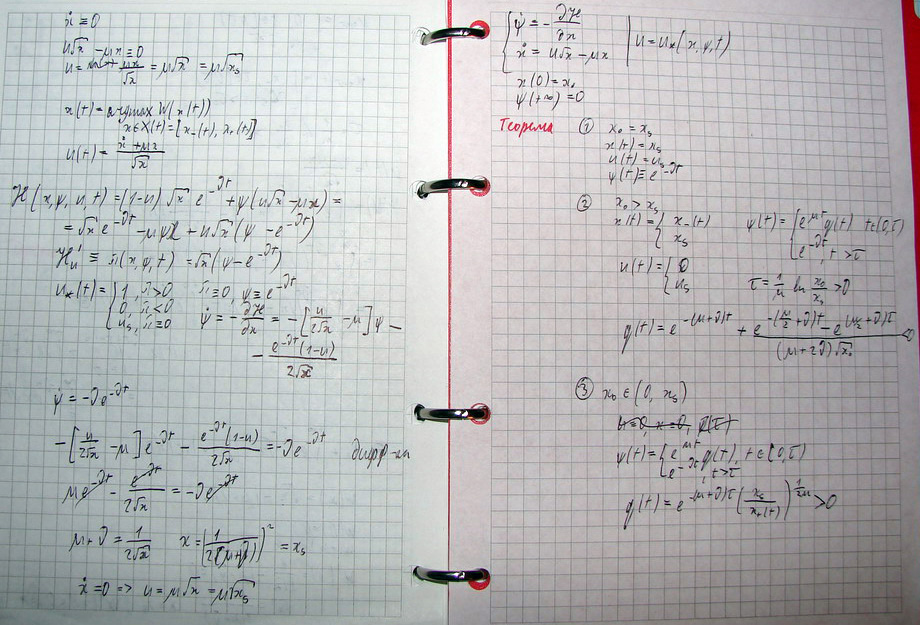 ẋ ≡ 0
u√x − μx ≡ 0
u = μx/√x = μ√x = μ√x_s
x(t) = argmax W(x(t))
x∈X(t) = [x₋(t), x₊(t)]
u(t) = (ẋ + μx)/√x
ℋ(x, ψ, u, t) = (1−u)√x e^{−∂t} + ψ(u√x − μx) =
= √x e^{−∂t} − μψx + u√x(ψ − e^{−∂t})
ℋ'_u ≡ π(x, ψ, t) = √x(ψ − e^{−∂t})
u_*(t) = { 1, π>0
0, π<0
u_s, π≡0
π≡0, ψ ≡ e^{−∂t}
ψ̇ = −∂ℋ/∂x = −[u/(2√x) − μ]ψ −
− e^{−∂t}(1−u)/(2√x)
ψ̇ = −∂e^{−∂t}
−[u/(2√x) − μ]e^{−∂t} − e^{−∂t}(1−u)/(2√x) = −∂e^{−∂t}
μe^{−∂t} − e^{−∂t}/(2√x) = −∂e^{−∂t}
μ + ∂ = 1/(2√x) x = (1/(2(μ+∂)))² = x_s
ẋ = 0 => u = μ√x = μ√x_s
{ ψ̇ = −∂ℋ/∂x
ẋ = u√x − μx | u = u_*(x, ψ, t)
x(0) = x₀
ψ(+∞) = 0
Теорема ① x₀ = x_s
x(t) = x_s
u(t) = u_s
ψ(t) ≡ e^{−∂t}
② x₀ > x_s
x(t) = { x₋(t)
x_s
ψ(t) = { e^{μt} q(t) t∈(0,τ)
e^{−∂t}, t>τ
u(t) = { 0
u_s
τ = 1/μ ln x₀/x_s > 0
q(t) = e^{−(μ+∂)t} + (e^{−(μ/2+∂)t} − e^{(μ/2+∂)τ})/((μ+2∂)√x₀)
③ x₀ ∈ (0, x_s)
ψ(t) = { e^{μt} q(t), t∈[0,τ)
e^{−∂t}, t>τ
q(t) = e^{−(μ+∂)τ} (x_s/x₊(t))^{1/2μ} > 0